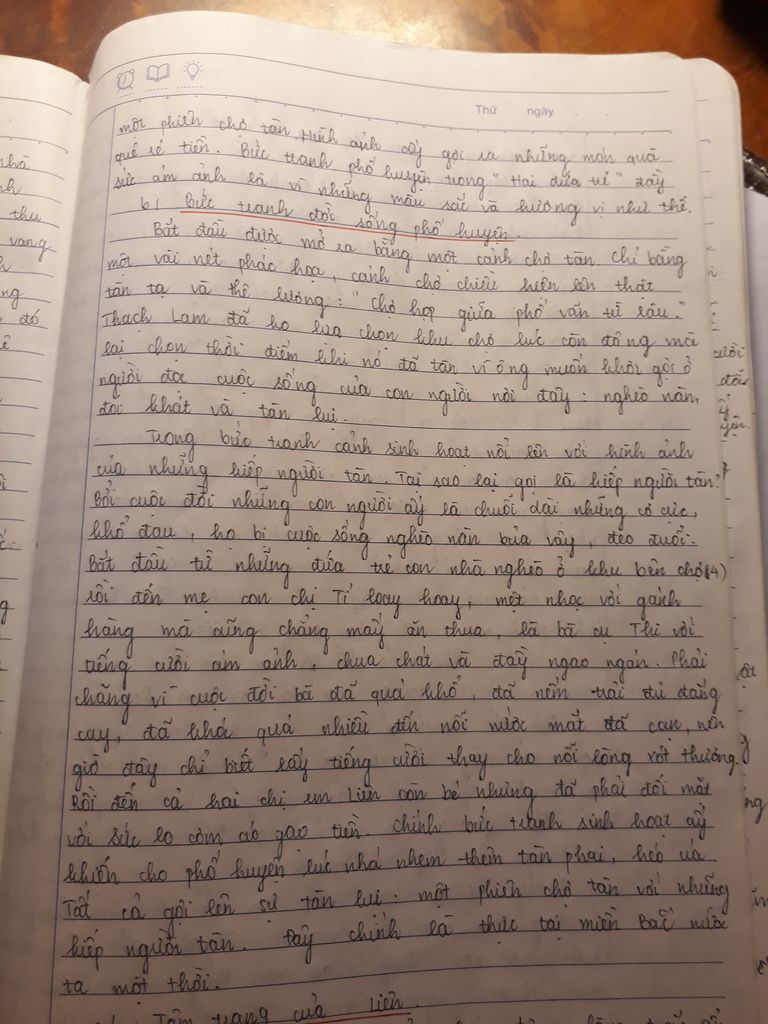 Thứ ngày
một phiên chợ tàn. Hình ảnh ấy gợi ra những món quà
quê rẻ tiền. Bức tranh phố huyện trong "Hai đứa trẻ" đầy
sức ám ảnh là vì những màu sắc và hương vị như thế.
b/ Bức tranh đời sống phố huyện.
Bắt đầu được mở ra bằng một cảnh chợ tàn. Chỉ bằng
một vài nét phác họa, cảnh chợ chiều hiện lên thật
tàn tạ và thê lương: "Chợ họp giữa phố vãn từ lâu."
Thạch Lam đã ko lựa chọn khu chợ lúc còn đông mà
lại chọn thời điểm khi nó đã tàn vì ông muốn khơi gợi ở
người đọc cuộc sống của con người nơi đây: nghèo nàn,
đói khát và tàn lụi.
Trong bức tranh cảnh sinh hoạt nổi lên với hình ảnh
của những kiếp người tàn. Tại sao lại gọi là kiếp người tàn?
Bởi cuộc đời những con người ấy là chuỗi dài những cơ cực,
khổ đau, họ bị cuộc sống nghèo nàn bủa vây, đeo đuổi.
Bắt đầu từ những đứa trẻ con nhà nghèo ở khu bên chợ(4)
rồi đến mẹ con chị Tí loay hoay, mệt nhọc với gánh
hàng mà cũng chẳng mấy ăn thua, là bà cụ Thi với
tiếng cười ám ảnh, chua chát và đầy ngao ngán. Phải
chăng vì cuộc đời bà đã quá khổ, đã nếm trải đủ đắng
cay, đã khóc quá nhiều đến nỗi nước mắt đã cạn, nên
giờ đây chỉ biết lấy tiếng cười thay cho nỗi lòng xót thương.
Rồi đến cả hai chị em Liên còn bé nhưng đã phải đối mặt
với sức lo cơm áo gạo tiền. Chính bức tranh sinh hoạt ấy
khiến cho phố huyện lúc nhá nhem thêm tàn phai, héo úa
Tất cả gợi lên sự tàn lụi. một phiên chợ tàn với những
kiếp người tàn. Đây chính là thực tại miền Bắc nước
ta một thời.
Tâm trạng của Liên.